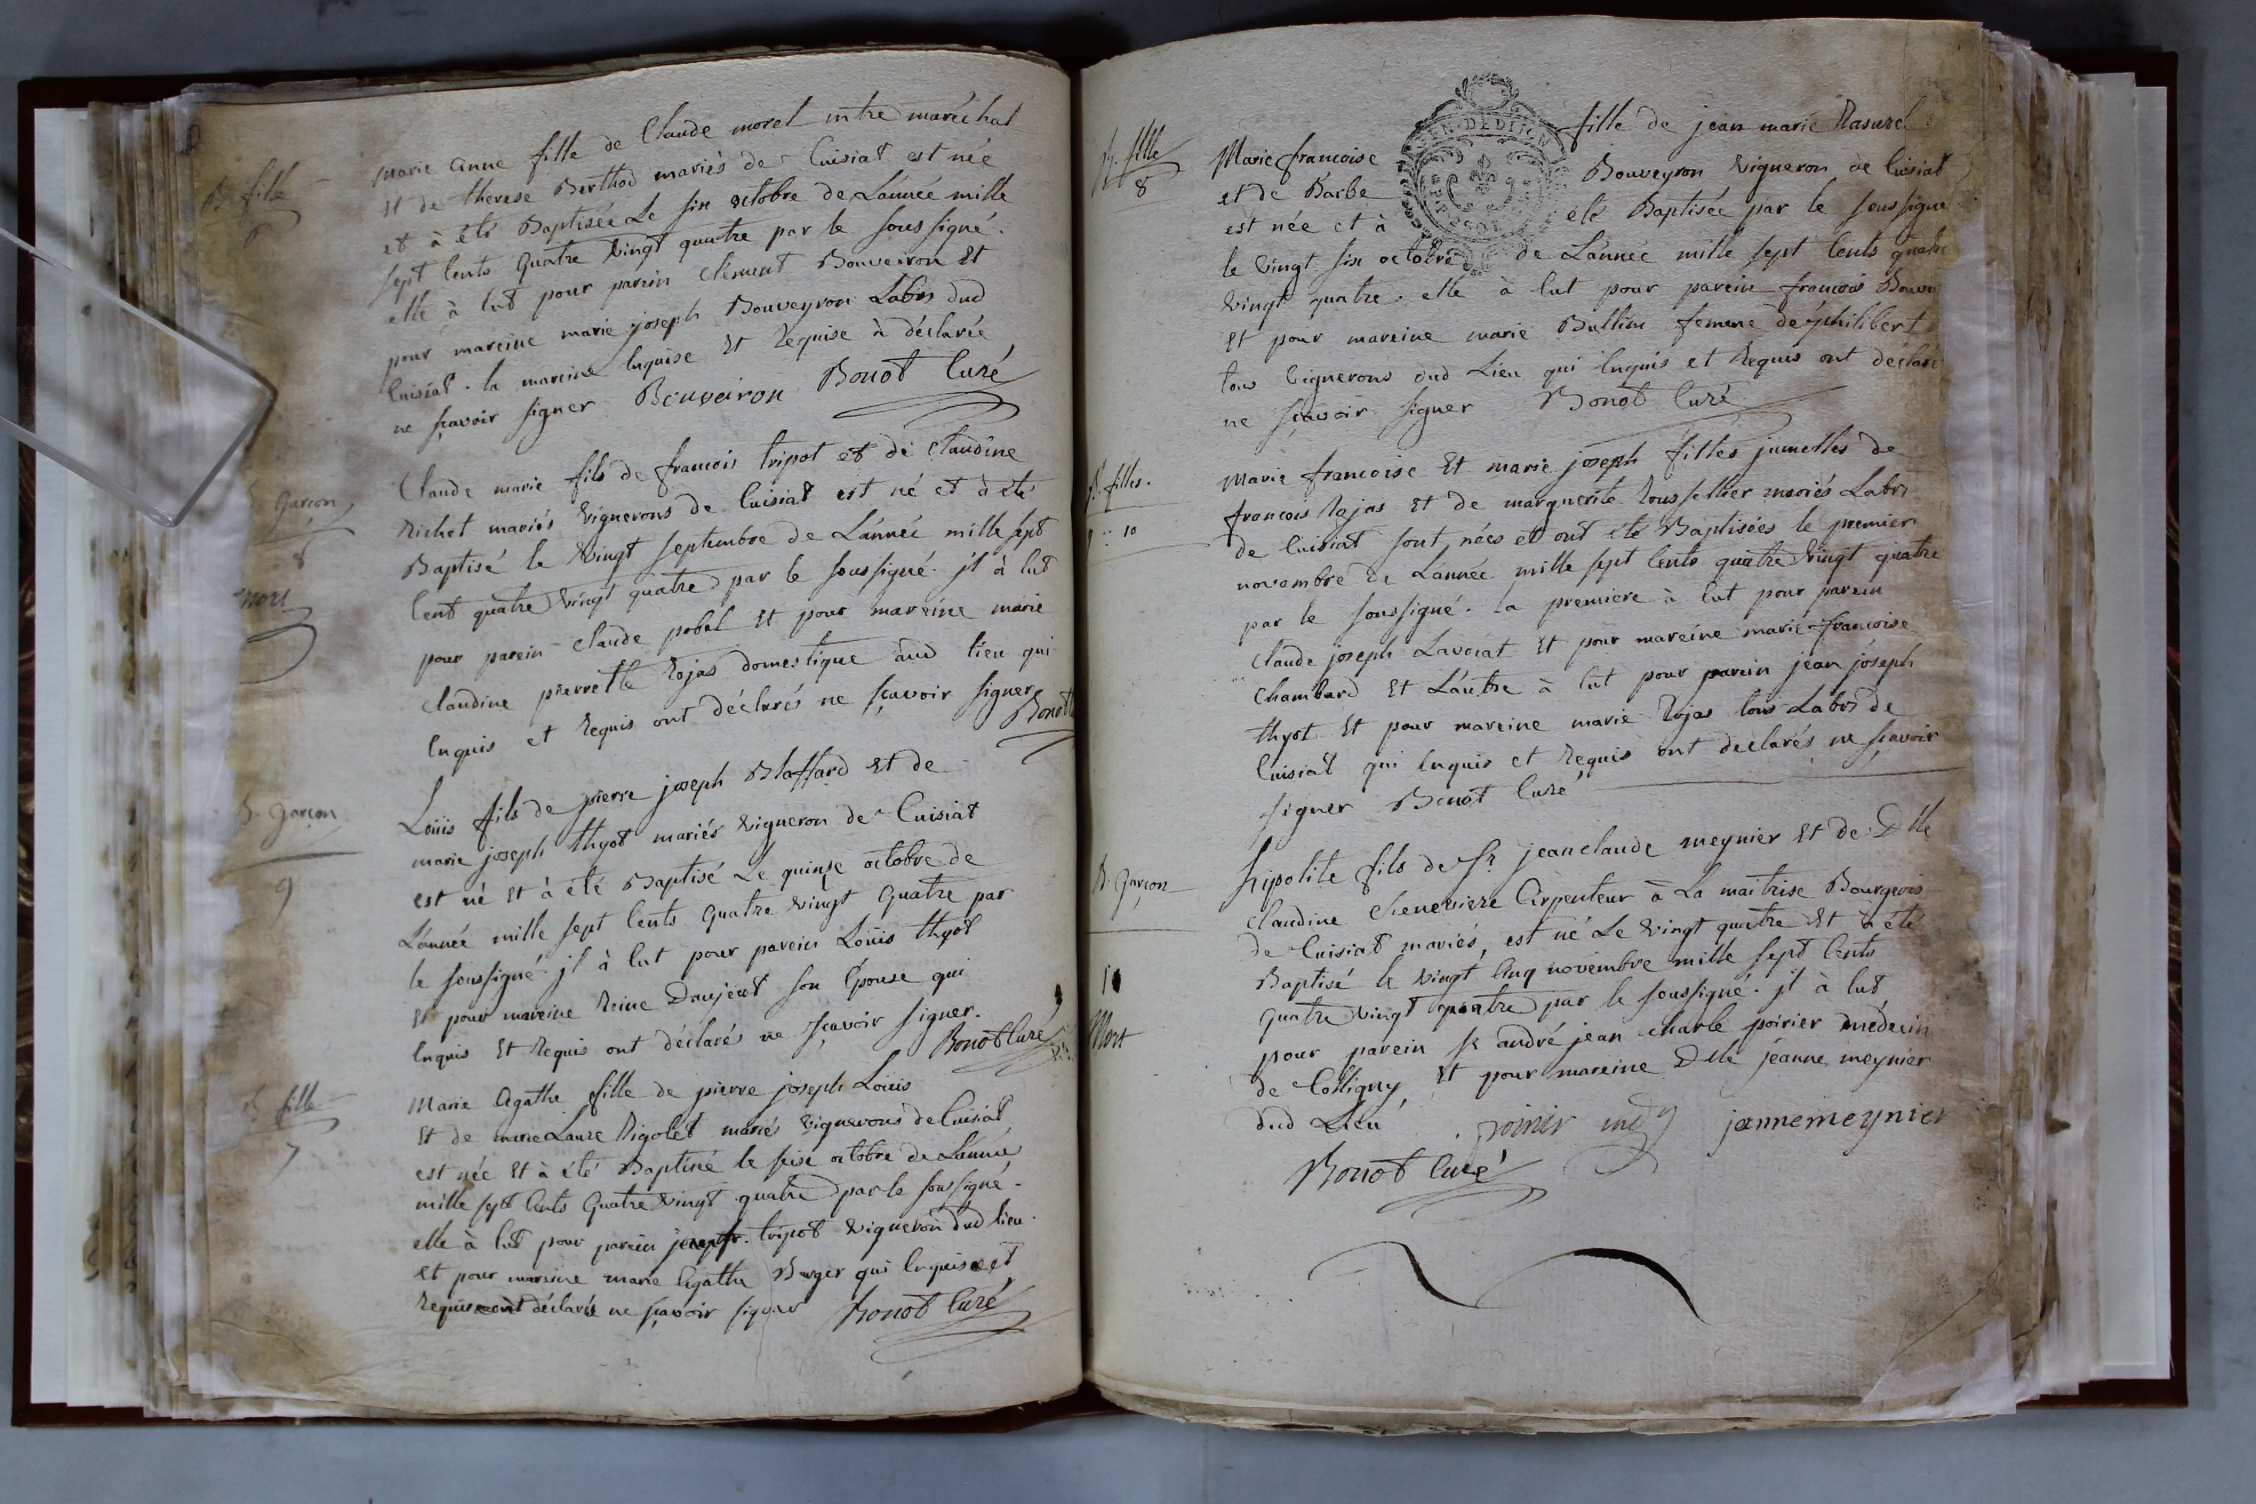 B. fille
6
Marie anne fille de Claude morel mtre maréchal
Et de therese Berthod mariés de Cuisiat est née
et à été Baptisée Le six octobre de Lánnée mille
sept Cents quatre Vingt quatre par le soussigné.
elle à Eut pour parein clement Bouveiron Et
pour mareine marie joseph Bouveyron Labrs dud
Cuisiat. la mareine Enquise Et Requise à déclarée
ne sçavoir signer Bouveiron Bonot Curé
Garçon
8
mort
Claude marie fils de francois tripot et de Claudine
Richet mariés Vignerons de Cuisiat est né et à été
Baptisé le Vingt septembre de Lánnée mille sept
Cent quatre Vingt quatre par le soussigné. jl à Eut
pour parein Claude pobel Et pour mareine marie
Claudine pierrette Rojas domestique aud lieu qui
Enquis et Requis ont déclarés ne sçavoir signer
Bonot
B. Garçon
9
Loüis fils de pierre joseph Blaffard Et de
marie joseph thyot mariés Vigneron de Cuisiat
est né Et à été Baptisé Le quinze octobre de
Lánnée mille sept Cents quatre Vingt quatre par
le soussigné. jl à Eut pour parein Loüis thyot
Et pour mareine Reine Daujeat son Épouse qui
Enquis Et Requis ont déclarés ne sçavoir signer.
Bonot Curé
B. fille
7
Marie Agathe fille de pierre joseph Loüis
Et de marie Laure Rigolet mariés Vignerons de Cuisiat
est née Et à été Baptisée le seize octobre de Lánnée
mille sept Cents quatre Vingt quatre par le soussigné.
elle à Eut pour parein joseph tripot Vigneron dud lieu.
Et pour mareine marie Agathe Berger qui Enquis et
Requis ont déclarés ne sçavoir signer Bonot Curé
B. fille
8
Marie francoise fille de jean marie Rasurel
et de Barbe Bouveyron Vigneron de Cuisiat
est née et à été Baptisée par le soussigné
le Vingt six octobre de Lánnée mille sept Cents quatre
Vingt quatre. elle à Eut pour parein francois
Et pour mareine marie Bullin femme de philibert
tous Vignerons dud Lieu qui Enquis et Requis ont déclaré
ne sçavoir signer Bonot Curé
B. filles.
9 .. 10
Marie francoise Et marie joseph filles jumelles de
francois Rojas Et de marguerite Rousselier mariés Labrs
de Cuisiat sont nées et ont été Baptisées le premier
novembre de Lánnée mille sept Cents quatre Vingt quatre
par le soussigné. La premiere à Eut pour parein
Claude joseph Lavorat Et pour mareine marie francoise
Chambard Et Láutre à Eut pour parein jean joseph
thyot Et pour mareine marie Rojas tous Labrs de
Cuisiat qui Enquis et Requis ont declarés ne sçavoir
signer Bonot Curé
B. Garçon
10
Mort
hipolite fils de Sr. jean claude meynier Et de Dlle
Claudine Arpenteur à La maitrise Bourgeois
de Cuisiat mariés, est né Le Vingt quatre Et à été
Baptisé le Vingt Cinq novembre mille sept Cents
quatre Vingt quatre par le soussigné. jl à Eut
pour parein Sr andré jean charle poirier medecin
de Colligny, Et pour mareine Dlle jeanne meynier
dud Lieu. poirier jannemeynier
Bonot Curé